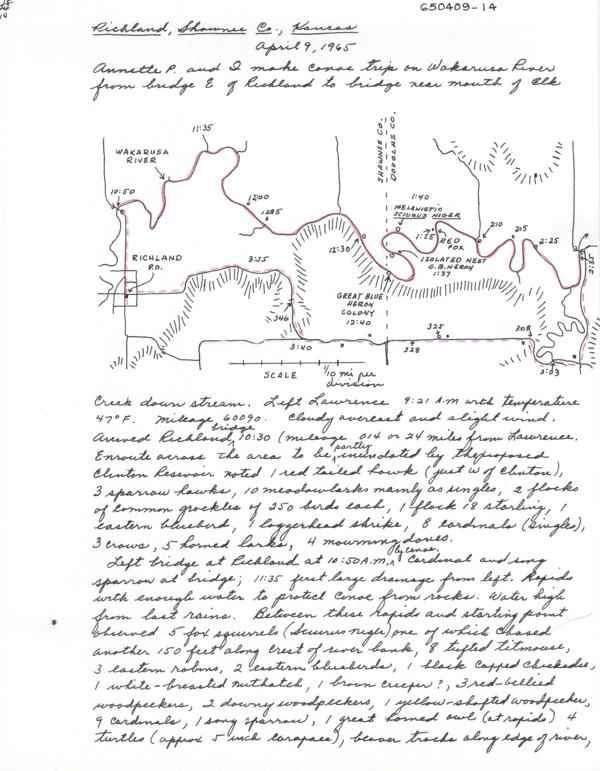 650409-14
Richland, Shawnee Co., Kansas
April 9, 1965
Annette P. and I make canoe trip on Wakarusa River
from bridge E of Richland to bridge near mouth of Elk
11:35
WAKARUSA
RIVER
SHAWNEE CO.
DOUGLAS CO.
10:50
12:00
1205
1:40
MELANISTIC
SCIURUS NIGER
1:35
RED
FOX
210
2:15
2:25
2:35
12:30
ISOLATED NEST
G.B. HERON
1:37
RICHLAND
P.O.
3:55
GREAT BLUE
HERON
COLONY
12:40
346
325
308
3:40
328
3:03
SCALE
1/10 mi per
division
Creek down stream. Left Lawrence 9:21 A.M with temperature
47°F. Mileage 60090. Cloudy overcast and slight wind.
Arrived Richland bridge 10:30 (mileage 014 or 24 miles from Lawrence.
Enroute across the area to be partly inundated by the proposed
Clinton Resevoir noted 1 red tailed hawk (just W of Clinton),
3 sparrow hawks, 10 meadowlarks mainly as singles, 2 flocks
of common grackles of 250 birds each, 1 flock 18 starling, 1
eastern bluebird, 1 loggerhead shrike, 8 cardinals (singles),
3 crows, 5 horned larks, 4 mourning doves.
Left bridge at Richland at 10:50 A.M. by canoe, Cardinal and song
sparrow at bridge; 11:35 first large drainage from left. Rapids
with enough water to protect canoe from rocks. Water high
from last rains. Between these rapids and starting point
observed 5 fox squirrels (Sciurus niger) one of which chased
another 150 feet along crest of river bank, 8 tufted titmouse,
3 eastern robins, 2 eastern bluebirds, 1 black capped chickadee,
1 white-breasted nuthatch, 1 brown creeper?, 3 red-bellied
woodpeckers, 2 downy woodpeckers, 1 yellow-shafted woodpecker,
9 cardinals, 1 song sparrow, 1 great horned owl (at rapids) 4
turtles (approx 5 inch carapace), beaver tracks along edge of river,